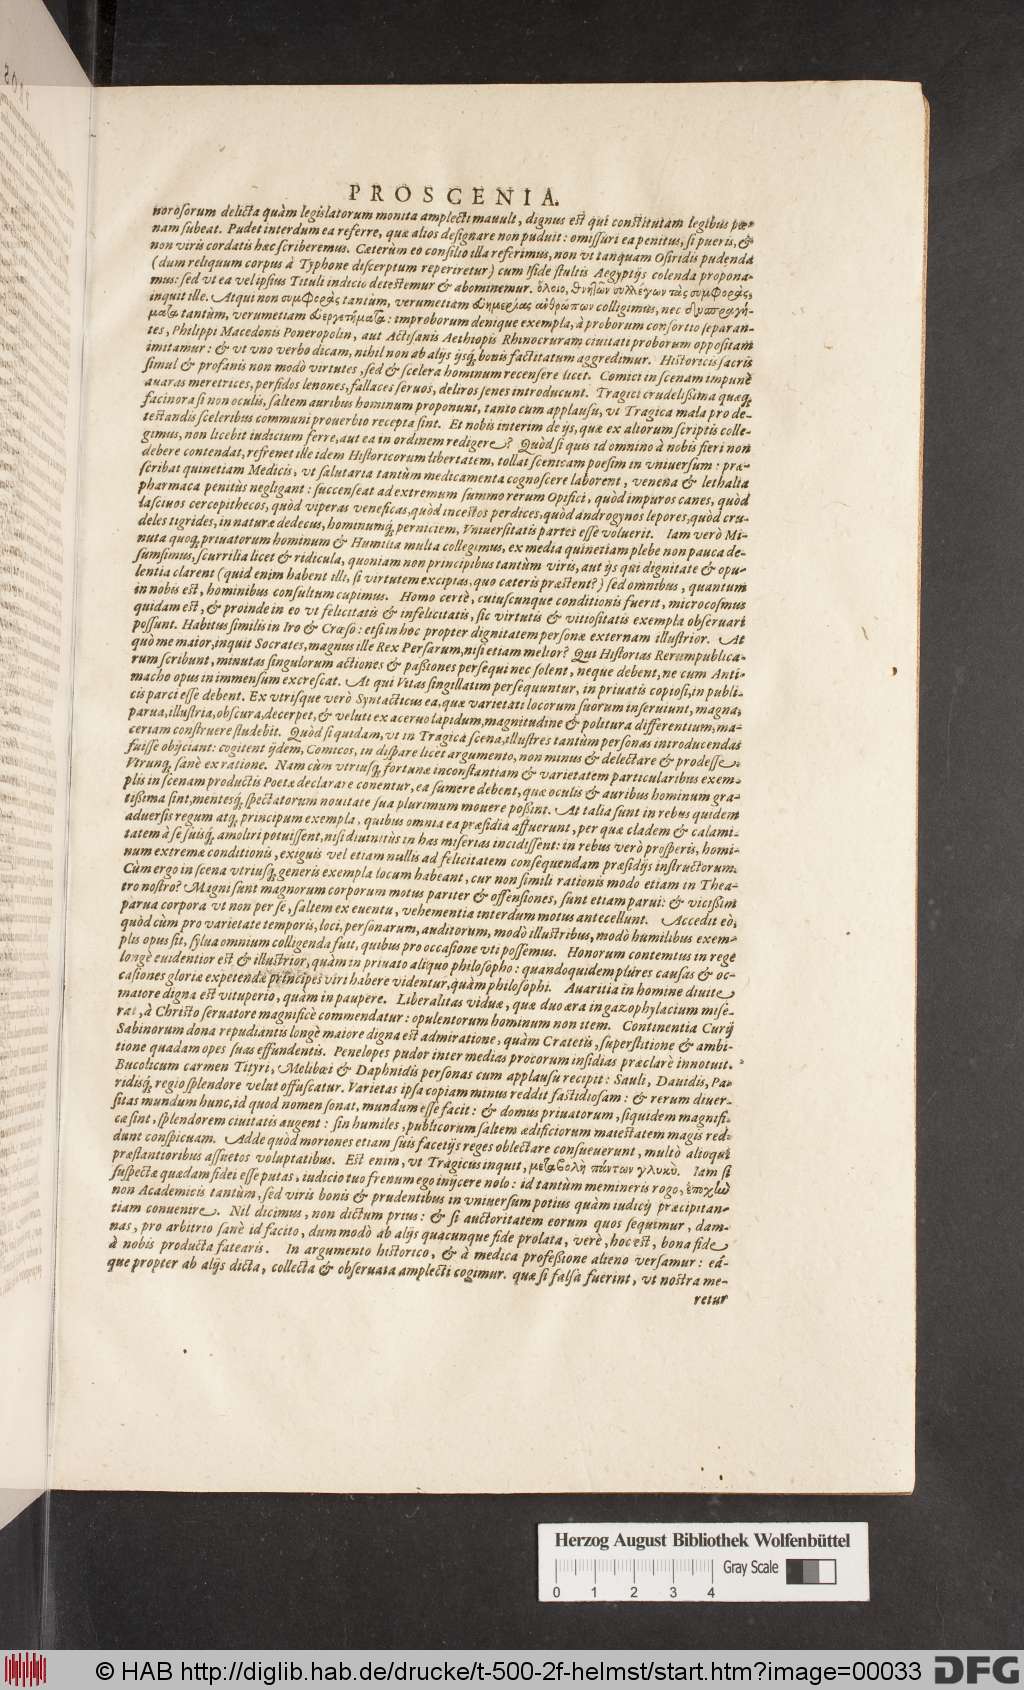 PROSCENIA.
norosorum delicta quàm legislatorum monita amplecti mauult, dignus est qui constitutam legibus pœ-
nam subeat. Pudet interdum ea referre, quæ alios designare non puduit: omissuri ea penitus, si pueris, &
non viris cordatis hæc scriberemus. Cæterùm eo consilio illa referimus, non vt tanquam Osiridis pudenda
(dum reliquum corpus à Typhone discerptum reperiretur) cum Iside stultis Aegyptijs colenda propona-
mus: sed vt ea vel ipsius Tituli indicio detestemur & abominemur. συλλέγων τὰς συμφοράς,
inquit ille. Atqui non συμφορὰς tantùm, verumetiam ἀνθρώπων colligimus, nec
tantùm, verumetiam : improborum denique exempla, à proborum consortio separan-
tes, Philippi Macedonis Poneropolin, aut Actisanis Aethiopis Rhinocruram ciuitati proborum oppositam
imitamur: & vt vno verbo dicam, nihil non ab alijs ijsq́ bonis factitatum aggredimur. Historicis sacris
simul & profanis non modò virtutes, sed & scelera hominum recensere licet. Comici in scenam impunè
auaras meretrices, perfidos lenones, fallaces seruos, deliros senes introducunt. Tragici crudelissima quæq́
facinora si non oculis, saltem auribus hominum proponunt, tanto cum applausu, vt Tragica mala pro de-
testandis sceleribus communi prouerbio recepta sint. Et nobis interim de ijs, quæ ex aliorum scriptis colle-
gimus, non licebit iudicium ferre, aut ea in ordinem redigere? Quòd si quis id omnino à nobis fieri non
debere contendat, refrenet ille idem Historicorum libertatem, tollat scenicam poesim in vniuersum: præ-
scribat quinetiam Medicis, vt salutaria tantùm medicamenta cognoscere laborent, venena & lethalia
pharmaca penitùs negligant: succenseat ad extremum summo rerum Opifici, quòd impuros canes, quòd
lasciuos cercopithecos, quòd viperas veneficas, quòd incestos perdices, quòd androgynos lepores, quòd cru-
deles tigrides, in naturæ dedecus, hominumq́ perniciem, Vniuersitatis partes esse voluerit. Iam verò Mi-
nuta quoq́ priuatorum hominum & Humilia multa collegimus, ex media quinetiam plebe non pauca de-
sumsimus, scurrilia licet & ridicula, quoniam non principibus tantùm viris, aut ijs qui dignitate & opu-
lentia clarent (quid enim habent illi, si virtutem excipias, quo cæteris præstent?) sed omnibus, quantum
in nobis est, hominibus consultum cupimus. Homo certè, cuiuscunque conditionis fuerit, microcosmus
quidam est, & proinde in eo vt felicitatis & infelicitatis, sic virtutis & vitiositatis exempla obseruari
possunt. Habitus similis in Iro & Crœso: etsi in hoc propter dignitatem personæ externam illustrior. At
quò me maior, inquit Socrates, magnus ille Rex Persarum, nisi etiam melior? Qui Historias Rerumpublica-
rum scribunt, minutas singulorum actiones & passiones persequi nec solent, neque debent, ne cum Anti-
macho opus in immensum excrescat. At qui Vitas singillatim persequuntur, in priuatis copiosi, in publi-
cis parci esse debent. Ex vtrisque verò Syntacticus ea, quæ varietati locorum suorum inseruiunt, magna,
parua, illustria, obscura, decerpet, & veluti ex aceruo lapidum, magnitudine & politura differentium, ma-
ceriam construere studebit. Quòd si quidam, vt in Tragica scena, illustres tantùm personas introducendas
fuisse obijciant: cogitent ijdem, Comicos, in dispare licet argumento, non minus & delectare & prodesse.
Vtrunq́ sanè ex ratione. Nam cùm vtriusq́ fortunæ inconstantiam & varietatem particularibus exem-
plis in scenam productis Poetæ declarare conentur, ea sumere debent, quæ oculis & auribus hominum gra-
tissima sint, mentesq́ spectatorum nouitate sua plurimum mouere possint. At talia sunt in rebus quidem
aduersis regum atq́ principum exempla, quibus omnia ea præsidia affuerunt, per quæ cladem & calami-
tatem à se suisq́ amoliri potuissent, nisi diuinitùs in has miserias incidissent: in rebus verò prosperis, homi-
num extremæ conditionis, exiguis vel etiam nullis ad felicitatem consequendam præsidijs instructorum.
Cùm ergo in scena vtriusq́ generis exempla locum habeant, cur non simili rationis modo etiam in Thea-
tro nostro? Magni sunt magnorum corporum motus pariter & offensiones, sunt etiam parui: & vicissim
parua corpora vt non per se, saltem ex euentu, vehementia interdum motus antecellunt. Accedit eò,
quòd cùm pro varietate temporis, loci, personarum, auditorum, modò illustribus, modò humilibus exem-
plis opus sit, sylua omnium colligenda fuit, quibus pro occasione vti possemus. Honorum contemtus in rege
longè euidentior est & illustrior, quàm in priuato aliquo philosopho: quandoquidem plures causas & oc-
casiones gloriæ expetendæ principes viri habere videntur, quàm philosophi. Auaritia in homine diuite
maiore digna est vituperio, quàm in paupere. Liberalitas viduæ, quæ duo æra in gazophylacium mise-
rat, à Christo seruatore magnificè commendatur: opulentorum hominum non item. Continentia Curij
Sabinorum dona repudiantis longè maiore digna est admiratione, quàm Cratetis, superstitione & ambi-
tione quadam opes suas effundentis. Penelopes pudor inter medias procorum insidias præclarè innotuit.
Bucolicum carmen Tityri, Melibœi & Daphnidis personas cum applausu recipit: Sauli, Dauidis, Pa-
ridisq́ regio splendore velut offuscatur. Varietas ipsa copiam minus reddit fastidiosam: & rerum diuer-
sitas mundum hunc, id quod nomen sonat, mundum esse facit: & domus priuatorum, siquidem magnifi-
cæ sint, splendorem ciuitatis augent: sin humiles, publicorum saltem ædificiorum maiestatem magis red-
dunt conspicuam. Adde quòd moriones etiam suis facetijs reges oblectare consueuerunt, multò alioqui
præstantioribus assuetos voluptatibus. Est enim, vt Tragicus inquit, μεταβολὴ πάντων γλυκύ. Iam si
suspectæ quædam fidei esse putas, iudicio tuo frenum ego inijcere nolo: id tantùm memineris rogo, ἐποχὴν
non Academicis tantùm, sed viris bonis & prudentibus in vniuersum potius quàm iudicij præcipitan-
tiam conuenire. Nil dicimus, non dictum prius: & si auctoritatem eorum quos sequimur, dam-
nas, pro arbitrio sanè id facito, dummodò ab alijs quacunque fide prolata, verè, hoc est, bona fide
à nobis producta fatearis. In argumento historico, & à medica professione alieno versamur: eá-
que propter ab alijs dicta, collecta & obseruata amplecti cogimur. quæ si falsa fuerint, vt nostra me-
retur
Herzog August Bibliothek Wolfenbüttel
Gray Scale
0 1 2 3 4
© HAB http://diglib.hab.de/drucke/t-500-2f-helmst/start.htm?image=00033
DFG